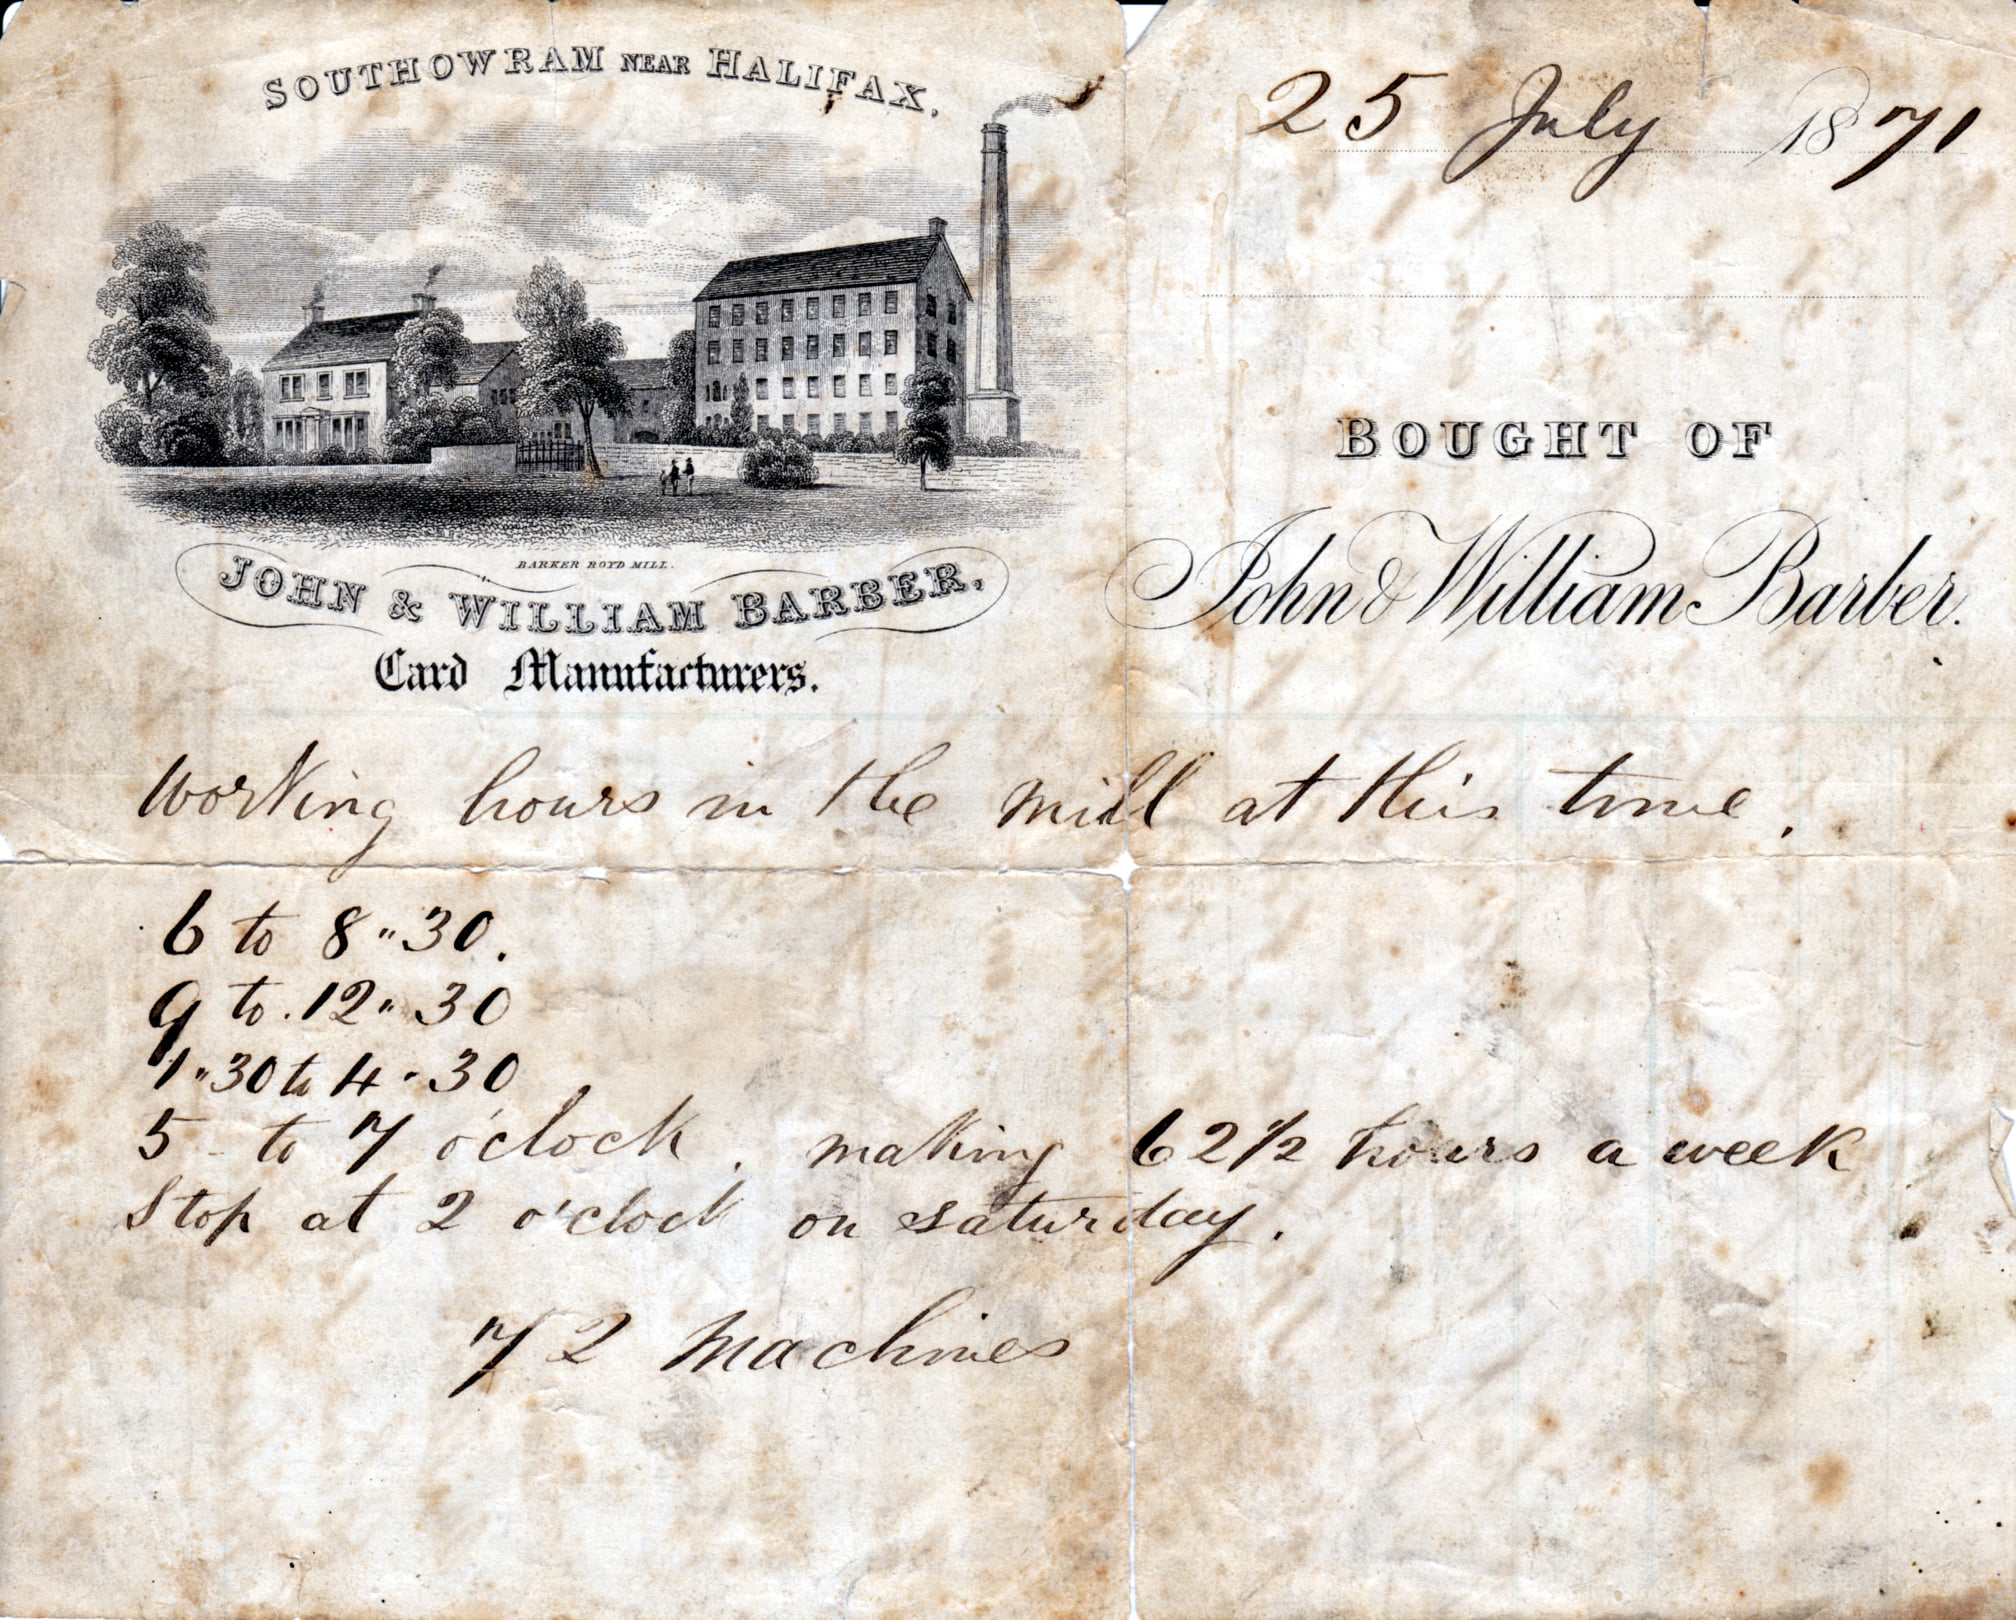 SOUTHOWRAM NEAR HALIFAX,
25 July 1871
BOUGHT OF
BARKER ROYD MILL.
JOHN & WILLIAM BARBER,
John & William Barber.
Card Manufacturers.
Working hours in the mill at this time.
6 to 8"30.
9 to 12"30
1"30 to 4"30
5 to 7 o'clock. making 62 1/2 hours a week
Stop at 2 o'clock on saturday.
72 Machines